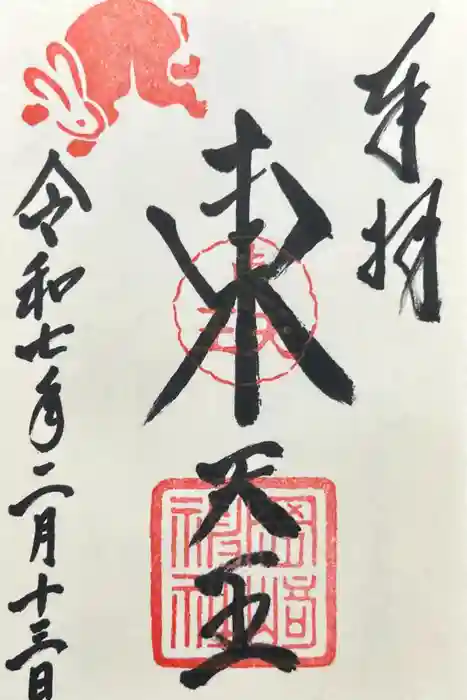 奉拝
東天王
岡崎
神社
令和七年二月十三日